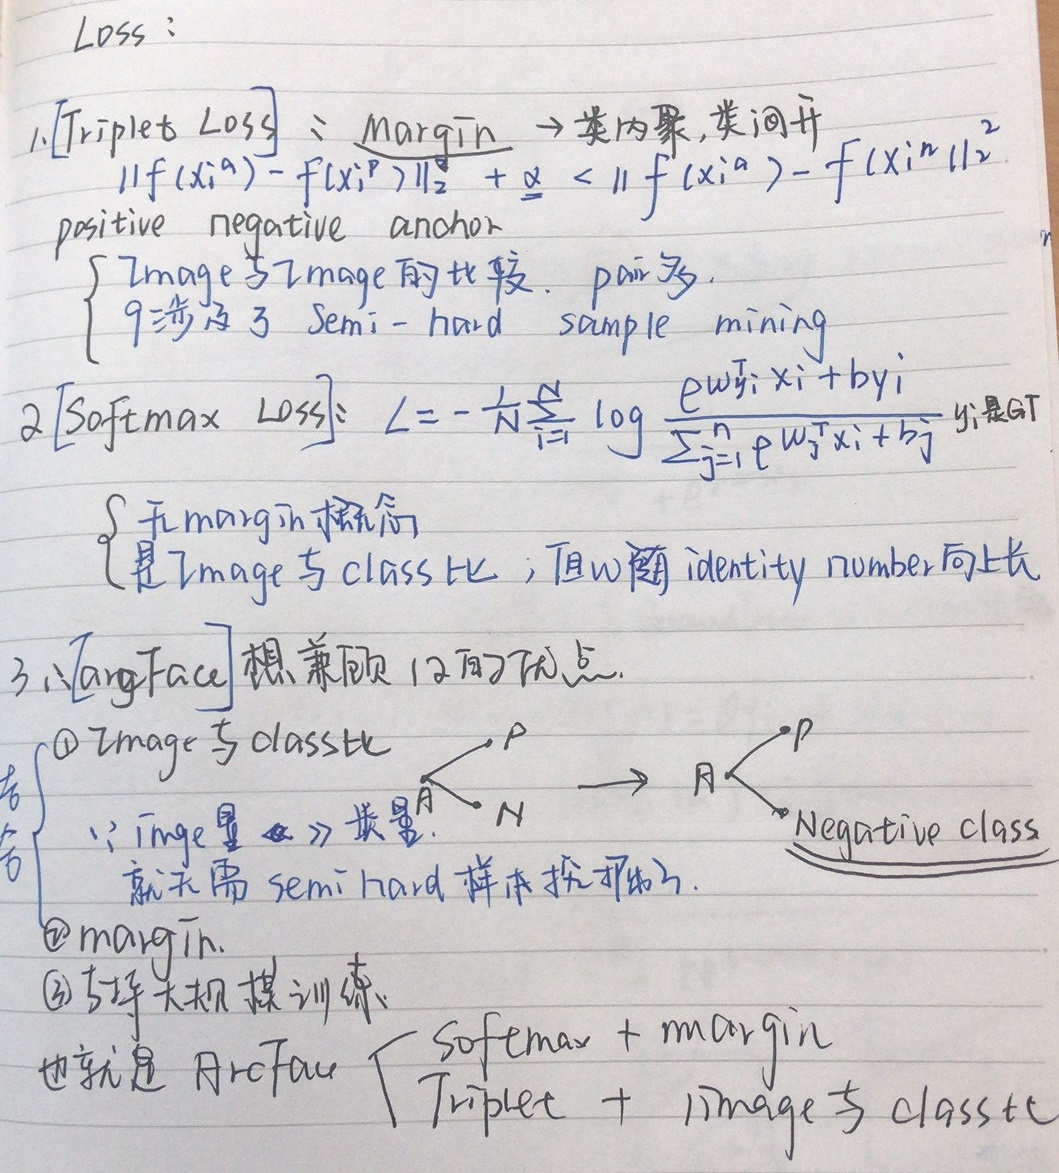 Loss:
1.[Triplet Loss]: margin → 类内聚,类间开
||f(xiᵃ) - f(xiᵖ)||₂² + α < ||f(xiᵃ) - f(xiⁿ)||₂²
positive negative anchor
Image与Image的比较. pair多.
涉及了 Semi-hard sample mining
2[Softmax Loss]: L = -1/N Σ_{i=1}^{N} log e^{W_{yi}^T xi + b_{yi}} / Σ_{j=1}^{n} e^{W_j^T xi + b_j} yi是GT
无margin概念
是Image与class比;但W随identity number向上长
3、[argFace]想兼顾12的优点.
①Image与class比
A P N → A P Negative class
∵imge量 >> 类量.
就无需semi hard样本挖掘了.
②margin.
③支持大规模训练、
也就是 ArcFace
Softmax + margin
Triplet + image与class比